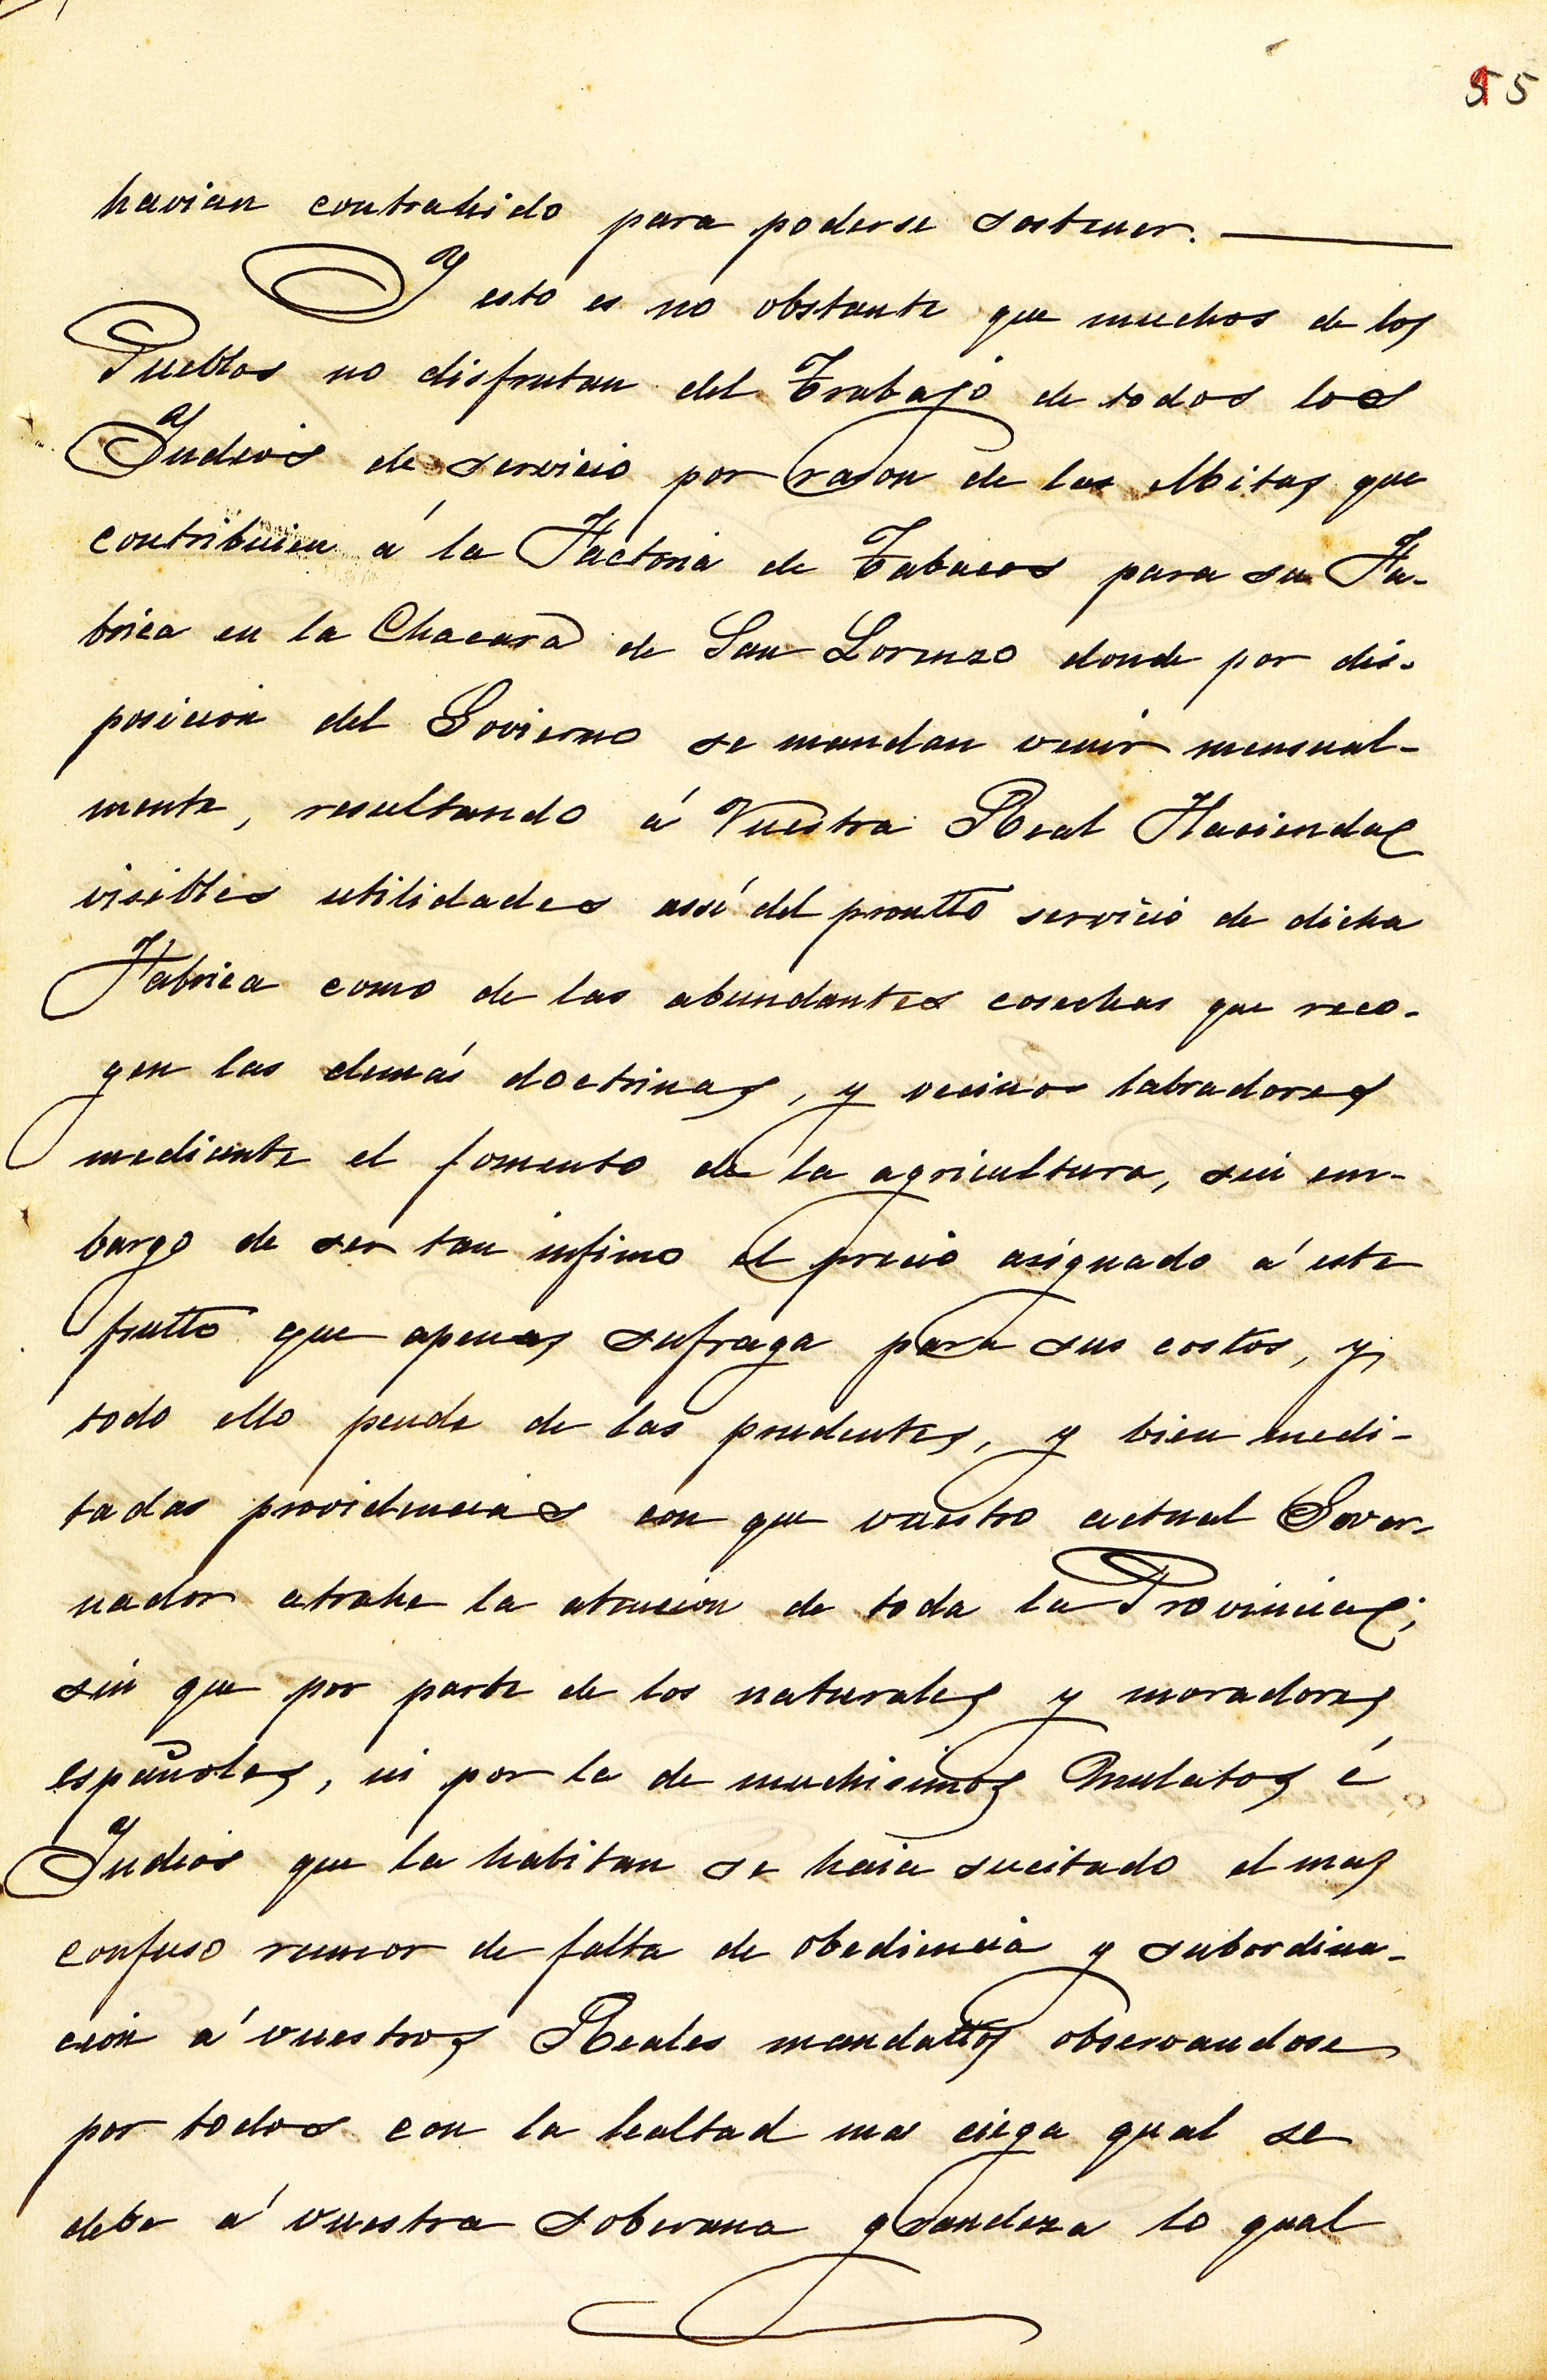 55
havian contrahido para poderse sostener.
Y esto es no obstante que muchos de los
Pueblos no disfrutan del Trabajo de todos los
Yndios de servicio por rason de las Mitas que
contribuien á la Factoria de Tabacos para su Fa-
brica en la Chacara de San Lorenzo donde por dis-
posicion del Govierno se mandan venir mensual-
mente, resultando á Vuestra Real Hacienda
visibles utilidades assi del prontto servicio de dicha
Fabrica como de las abundantes cosechas que reco-
gen las demás doctrinas, y vecinos labradores
mediente el fomento de la agricultura, sin em-
bargo de ser tan infimo el precio asignado á este
frutto que apenas sufraga para sus costos, y
todo ello pende de las prudentes, y bien medi-
tadas providencias con que vuestro actual Gover-
nador atrahe la atencion de toda la Provincia;
sin que por parte de los naturales y moradores
españoles, ni por la de muchisimos Mulatos é
Yndios que la habitan se haia sucitado el mas
confuso rumor de falta de obediencia y subordina-
cion á vuestros Reales mandattos observandose
por todos con la lealtad mas ciega qual se
debe á vuestra soberana grandeza lo qual